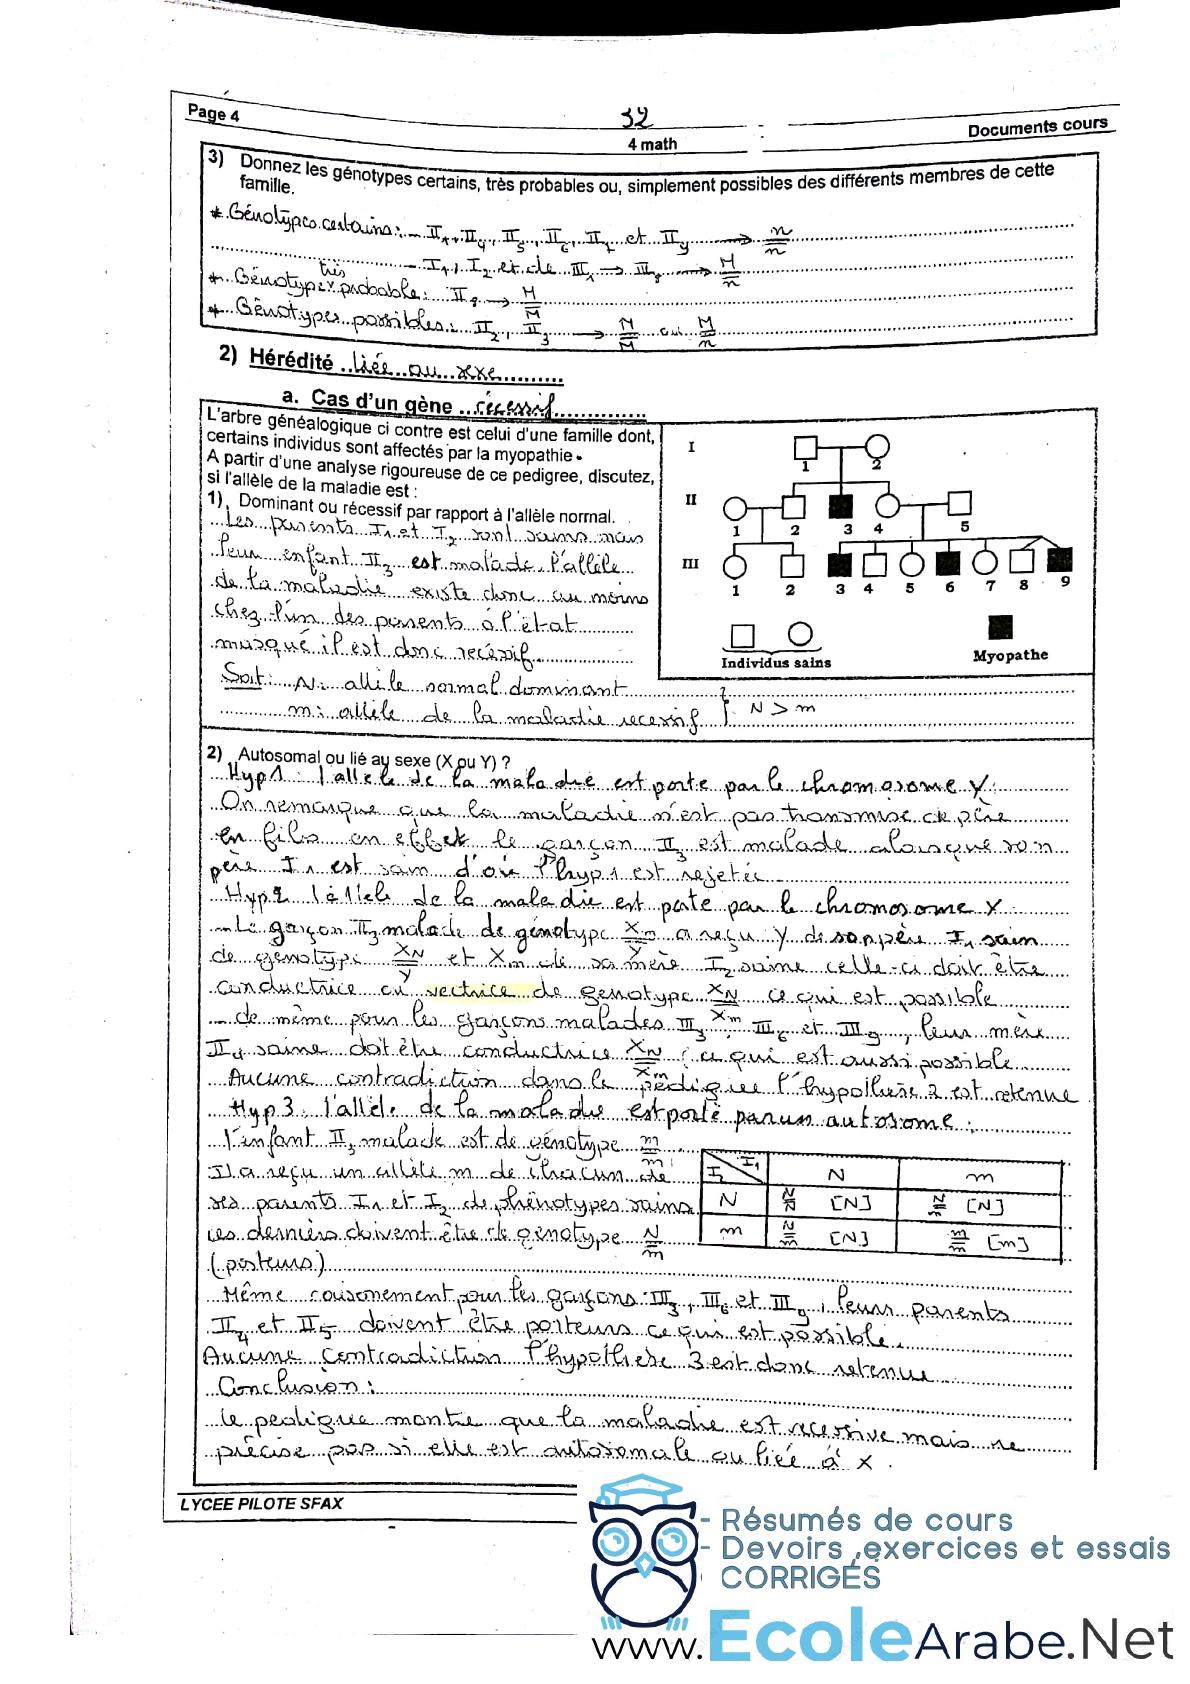 Page 4
32
4 math
Documents cours
3) Donnez les génotypes certains, très probables ou, simplement possibles des différents membres de cette
famille.
* Génotypes certains: - II1, II4, II5, II6, II7 et II9 → n/n
- I1, I2 et de III1 → III8 → M/n
très
* Génotypes probable: II8 → M/M
* Génotypes possibles: II2, II3 → M/M ou M/n
2) Hérédité liée au sexe
a. Cas d'un gène récessif
L'arbre généalogique ci contre est celui d'une famille dont,
certains individus sont affectés par la myopathie -
A partir d'une analyse rigoureuse de ce pedigree, discutez,
si l'allèle de la maladie est :
1) Dominant ou récessif par rapport à l'allèle normal.
Les parents I1 et I2 sont sains mais
leur enfant II3 est malade, l'allèle
de la maladie existe donc au moins
chez l'un des parents à l'état
masqué il est donc recéssif.
Soit: N: allèle normal dominant
m: allèle de la maladie recessif } N > m
I
1 2
II
1 2 3 4 5
III
1 2 3 4 5 6 7 8 9
Individus sains
Myopathe
2) Autosomal ou lié au sexe (X ou Y) ?
Hyp1: l'allèle de la maladie est porté par le chromosome Y:
On remarque que la maladie n'est pas transmise de père
en fils en effet le garçon II3 est malade alorsque son
père I1 est sain d'où l'hyp1 est rejetée
Hyp2 l'allèle de la maladie est porté par le chromosome X:
- Le garçon II3 malade de génotype Xm/Y a reçu Y de son père I1 sain
de génotype XN/Y et Xm de sa mère I2 saine celle-ci doit être
conductrice ou vectrice de genotype XN/Xm ce qui est possible
- de même pour les garçons malades III3, III6 et III9, leur mère
II4 saine doit être conductrice XN/Xm: ce qui est aussi possible
Aucune contradiction dans le pédigree l'hypothèse 2 est retenue
Hyp3: l'allèle de la maladie est porté par un autosome:
l'enfant II3 malade est de génotype m/m
Il a reçu un allèle m de chacun de
ses parents I1 et I2 de phénotypes sains
ces derniers doivent être de génotype N/m
(porteurs)
I2 I1 N m
N N/N [N] N/m [N]
m N/m [N] m/m [m]
Même raisonement pour les garçons: III3, III6 et III9, leurs parents
II4 et II5 doivent être porteurs ce qui est possible.
Aucune contradiction l'hypothèse 3 est donc retenue
Conclusion:
le pedigree montre que la maladie est recessive mais ne
précise pas si elle est autosomale ou liée à X.
LYCEE PILOTE SFAX
- Résumés de cours
- Devoirs, exercices et essais
CORRIGÉS
www.EcoleArabe.Net